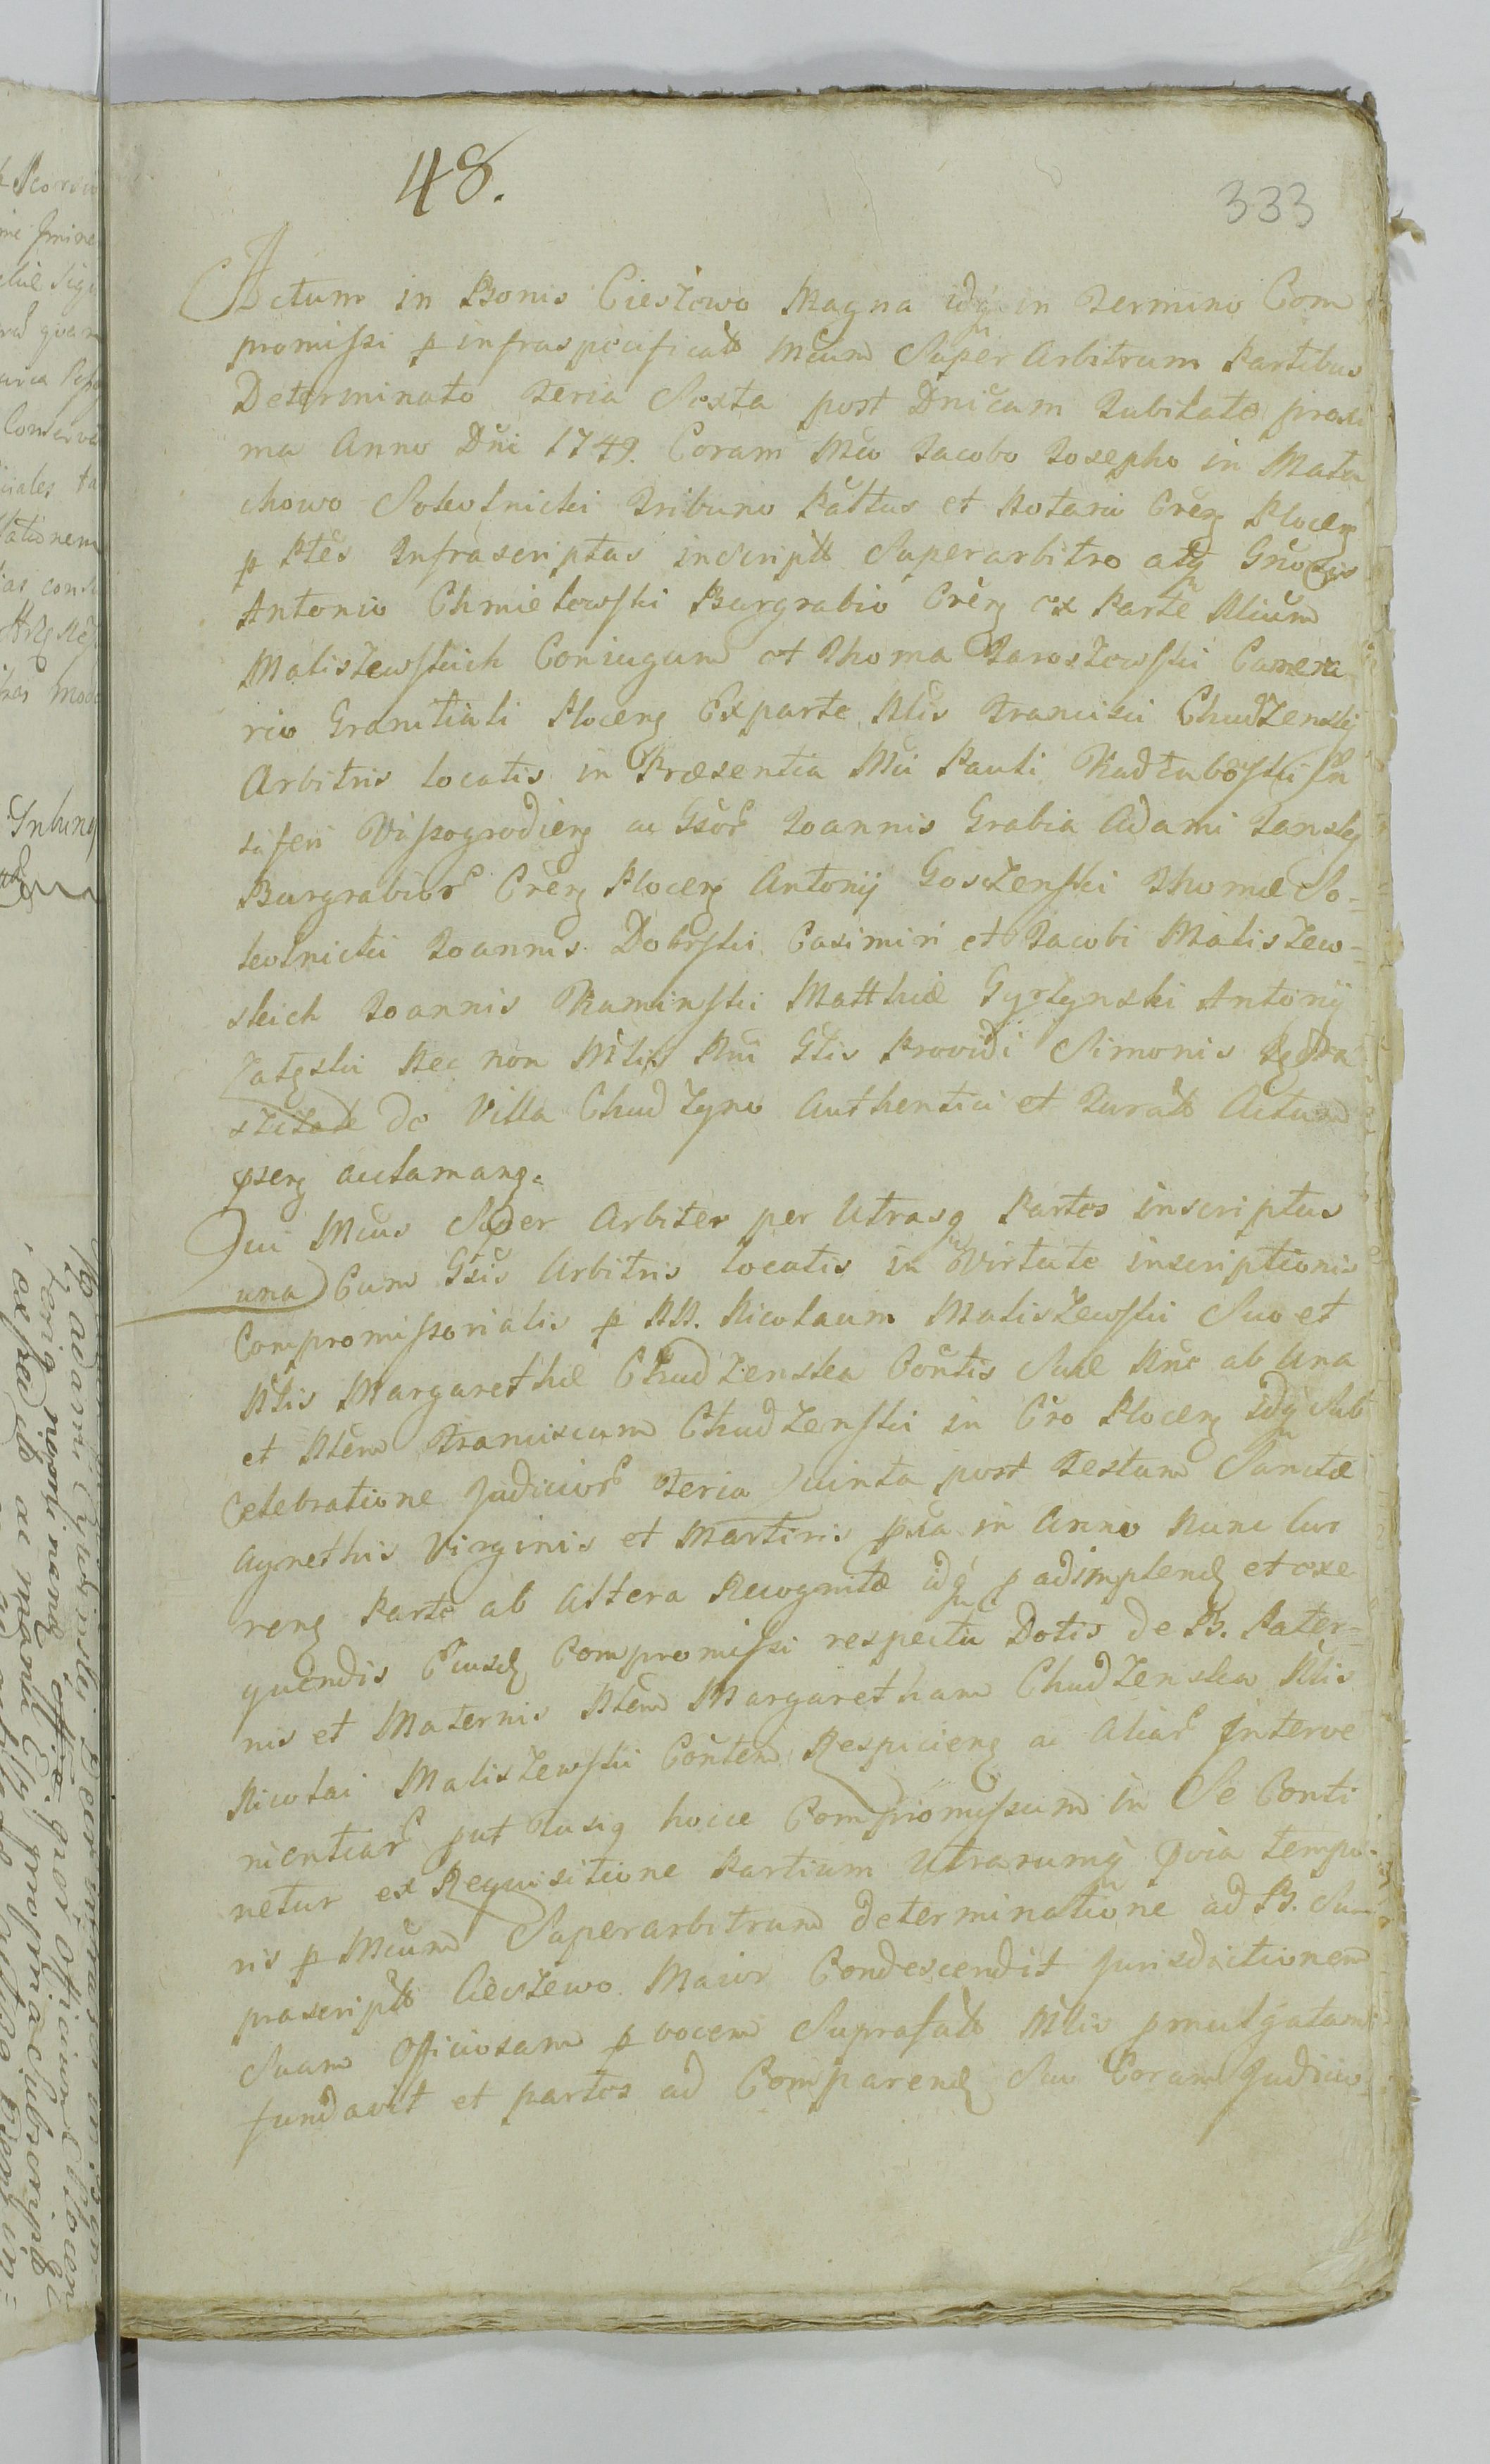 48.
333
Actum in Bonis Cieszewo Magna idq in Termino Com
promissi p infraspecificatt Mcum Super Arbitrum Partibus
Determinato Feria Sexta post Dnicam Jubilate proxi
ma Anno Dni 1749. Coram Mco Jacobo Josepho in Mała
chowo Sokolnicki Tribuno Pałtus et Notario Cren Plocen
p Ptes Infrascriptas inscriptt Superarbitro atq Gnosis
Antonio Chmielewski Burgrabio Cren ex Parte Nlium
Maliszewskich Coniugum et Thoma Jaroszewski Camera
rio Granitiali Plocen Exparte Nlis Francisci Chudzenski
Arbitris locatis in Præsentia Mci Pauli Kadłubowski En
siferi Vissogrodien ac Gsor Joannis Grabia Adami Jansky
Burgrabior Cren Plocen Antonij Goszenski Thomæ So=
kolnicki Joannis Dobrski Casimiri et Jacobi Maliszew=
skich Joannis Kaminski Matthiæ Gyrzynski Antonij
Zatęski Nec non Mlis Rni Glis Providi Simonis
de Villa Chudzyno Authentici et Juratt Actum
psen acclaman.
Qui Mcus Super Arbiter per Utrasq Partes inscriptus
una Cum Gsis Arbitris locatis in Virtute inscriptionis
Compromissorialis p NN. Nicolaum Maliszewski Suo et
Nlis Margarethæ Chudzenska Contis Suæ Nne ab Una
et Nlem Franciscum Chudzenski in Cro Plocen idq Sub
Celebratione Judicior Feria Quinta post Festum Sanctæ
Agnethis Virginis et Martiris pxa in Anno Nunc Cur
ren Parte ab Altera Recognitæ idq p adimplend et exe
quendis Eiusd Compromissi respectu Dotis de B. Pater=
nis et Maternis Nlem Margaretham Chudzenska Nlis
Nicolai Maliszewski Contem Respicien ac Aliar Interve
nientiar put Fusiq hocce Compromissum in Se Conti
netur ex Requisitione Partium Utrarumq qvia tempo=
ris p Mcum Superarbitrum determinatione ad B. Su=
prascriptt Cieszewo Maior Condescendit Jurisdictionem
Suam Officiosam p vocem Suprafatt Mlis pmulgatam
fundavit et partes ad Comparend Sui Coram Judicio